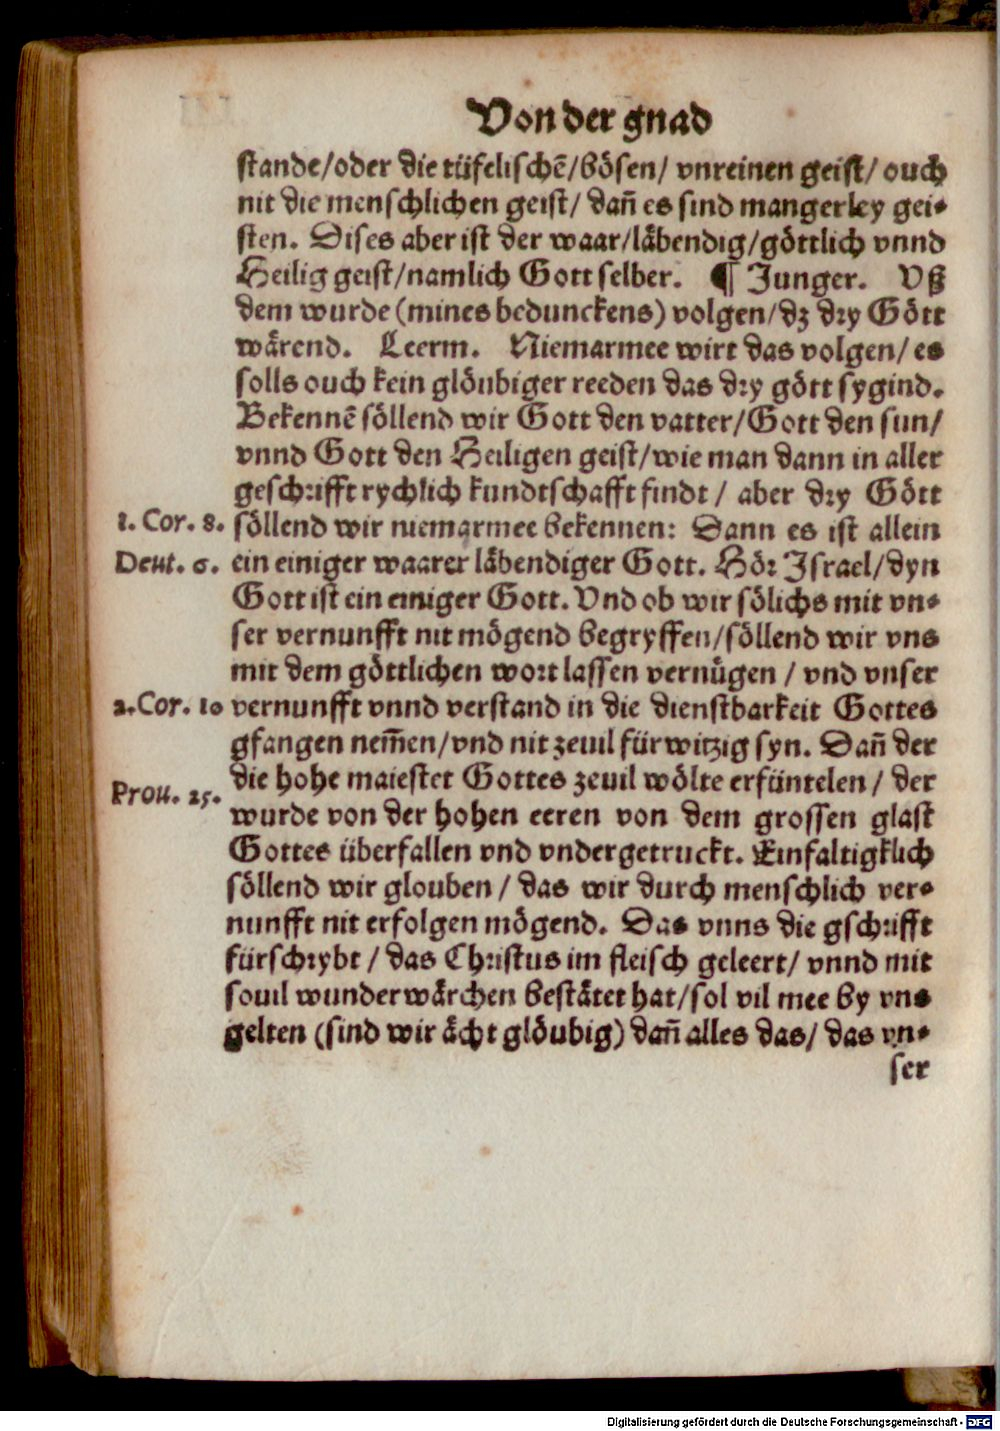 Von der gnad
stande/oder die tüfelischē/bösen/ vnreinen geist/ ouch
nit die menschlichen geist/ dañ es sind mangerley gei⸗
sten. Dises aber ist der waar/läbendig/göttlich vnnd
Heilig geist/namlich Gott selber. ¶ Junger. Vß
dem wurde (mines bedunckens) volgen/dz dry Gött
wärend. Leerm. Niemarmee wirt das volgen/ es
solls ouch kein glöubiger reeden das dry gött sygind.
Bekennē söllend wir Gott den vatter/Gott den sun/
vnnd Gott den Heiligen geist/wie man dann in aller
geschrifft rychlich kundtschafft findt / aber dry Gött
1. Cor. 8. söllend wir niemarmee bekennen: Dann es ist allein
Deut. 6. ein einiger waarer läbendiger Gott. Hör Israel/dyn
Gott ist ein einiger Gott. Vnd ob wir sölichs mit vn⸗
ser vernunfft nit mögend begryffen/söllend wir vns
mit dem göttlichen wort lassen vernügen / vnd vnser
2. Cor. 10 vernunfft vnnd verstand in die dienstbarkeit Gottes
gfangen nem̄en/vnd nit zeuil fürwitzig syn. Dañ der
die hohe maiestet Gottes zeuil wölte erfüntelen / der
Prou. 25. wurde von der hohen eeren von dem grossen glast
Gottes überfallen vnd vndergetruckt. Einfaltigklich
söllend wir glouben / das wir durch menschlich ver⸗
nunfft nit erfolgen mögend. Das vnns die gschrifft
fürschrybt / das Christus im fleisch geleert/ vnnd mit
souil wunderwärchen bestätet hat/sol vil mee by vns
gelten (sind wir ächt glöubig) dañ alles das/ das vn⸗
ser
Digitalisierung gefördert durch die Deutsche Forschungsgemeinschaft - DFG